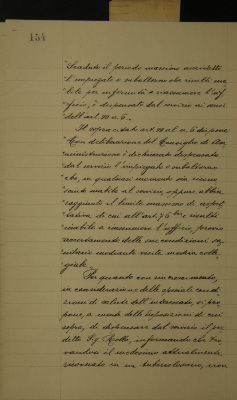 154
"Scaduto il periodo massimo suddetto
l'impiegato o subalterno che risulti ina-
bile per infermità a riassumere l'uf-
ficio, è dispensato dal servizio ai sensi
dell'art. 80 a 6.
Il sopra citato art. 80 al n. 6 dispone
"Con deliberazione del Consiglio di Am-
ministrazione è dichiarato dispensato
dal servizio l'impiegato o subalterno
che, in qualsiasi momento sia ricono-
sciuto inabile al servizio oppure abbia
raggiunto il limite massimo di aspet-
tativa di cui all'art. 76 e risulti
inabile a riassumere l'ufficio, previo
accertamento delle sue condizioni sa-
nitarie mediante visita medica colle-
giale.
Per quanto con rincrescimento,
in considerazione delle speciali condi-
zioni di salute dell'interessato, si pro-
pone, a mente delle disposizioni di cui
sopra, di dispensare dal servizio il pre-
detto Sig. Motta, informando che tro-
vandosi il medesimo attualmente
ricoverato in un tubercolosario, non